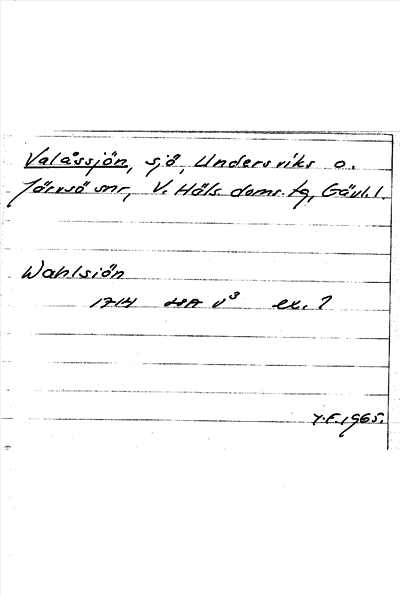 Valåssjön, sjö, Undersviks o.
Järvsö snr, V. Häls. doms. tg, Gävl. l.
Wahlsiön
1714 LSA v³ ex. 7
Y.F. 1965.